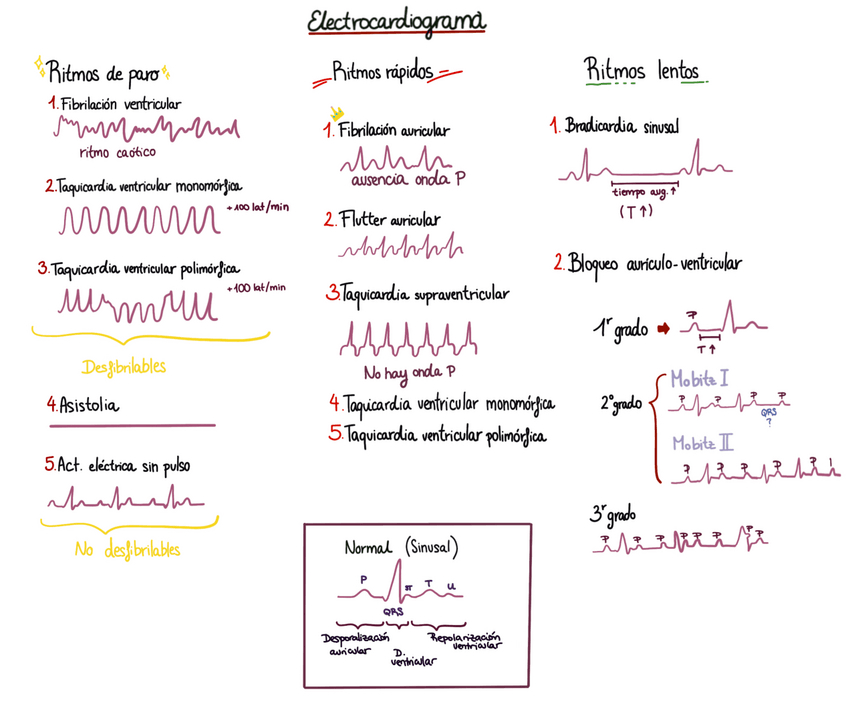 Electrocardiograma
Ritmos de paro
1. Fibrilación ventricular
ritmo caótico
2. Taquicardia ventricular monomórfica
+100 lat/min
3. Taquicardia ventricular polimórfica
+100 lat/min
Desfibrilables
4. Asistolia
5. Act. eléctrica sin pulso
No desfibrilables
Ritmos rápidos
1. Fibrilación auricular
ausencia onda P
2. Flutter auricular
3. Taquicardia supraventricular
No hay onda P
4. Taquicardia ventricular monomórfica
5. Taquicardia ventricular polimórfica
Normal (Sinusal)
P
T
u
QRS
Despolarización
auricular
D.
ventricular
Repolarización
ventricular
Ritmos lentos
1. Bradicardia sinusal
tiempo aug. ↑
(T↑)
2. Bloqueo aurículo-ventricular
1r grado
P
T↑
2º grado
Mobitz I
P P P P
QRS
?
Mobitz II
P P P P P
3r grado
P P P P P P P P